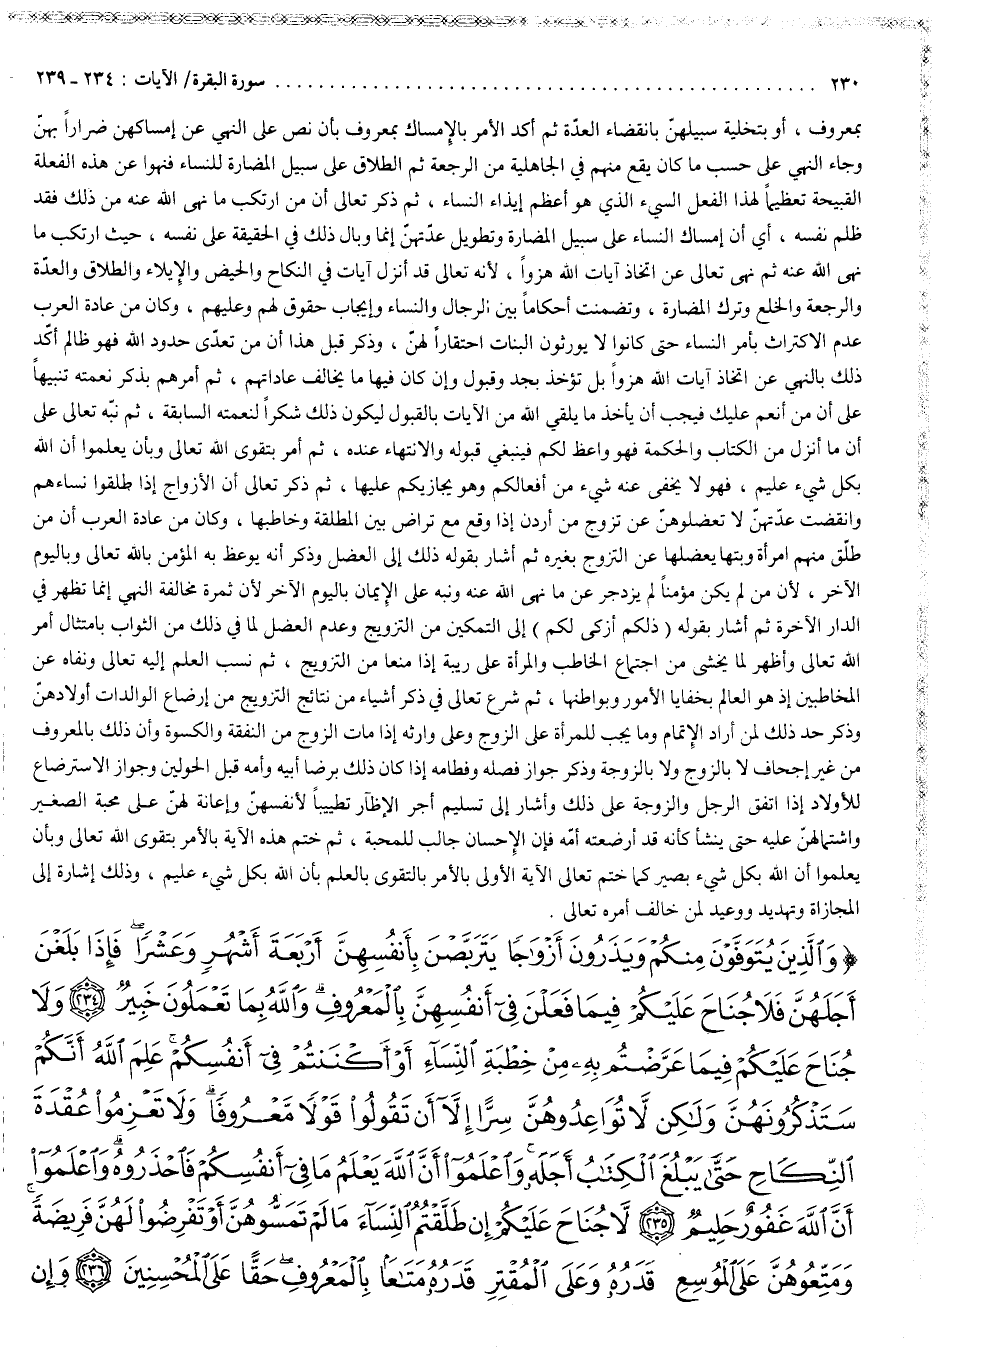 ٢٣٠ . . . . . . . . . . . . . . . . . . . . . . . . . . . . . . . . . . . . . . . . . . . . . . . . . . سورة البقرة/ الآيات : ٢٣٤ ـ ٢٣٩
بمعروف ، أو بتخلية سبيلهنّ بانقضاء العدّة ثم أكد الأمر بالإمساك بمعروف بأن نص على النهي عن إمساكهن ضراراً بهنّ
وجاء النهي على حسب ما كان يقع منهم في الجاهلية من الرجعة ثم الطلاق على سبيل المضارة للنساء فنهوا عن هذه الفعلة
القبيحة تعظيماً لهذا الفعل السيء الذي هو أعظم إيذاء النساء ، ثم ذكر تعالى أن من ارتكب ما نهى الله عنه من ذلك فقد
ظلم نفسه ، أي أن إمساك النساء على سبيل المضارة وتطويل عدّتهنّ إنما وبال ذلك في الحقيقة على نفسه ، حيث ارتكب ما
نهى الله عنه ثم نهى تعالى عن اتخاذ آيات الله هزواً ، لأنه تعالى قد أنزل آيات في النكاح والحيض والإيلاء والطلاق والعدّة
والرجعة والخلع وترك المضارة ، وتضمنت أحكاماً بين الرجال والنساء وإيجاب حقوق لهم وعليهم ، وكان من عادة العرب
عدم الاكتراث بأمر النساء حتى كانوا لا يورثون البنات احتقاراً لهنّ ، وذكر قبل هذا أن من تعدّى حدود الله فهو ظالم أكّد
ذلك بالنهي عن اتخاذ آيات الله هزواً بل تؤخذ بجد وقبول وإن كان فيها ما يخالف عاداتهم ، ثم أمرهم بذكر نعمته تنبيهاً
على أن من أنعم عليك فيجب أن يأخذ ما يلقي الله من الآيات بالقبول ليكون ذلك شكراً لنعمته السابقة ، ثم نبّه تعالى على
أن ما أنزل من الكتاب والحكمة فهو واعظ لكم فينبغي قبوله والانتهاء عنده ، ثم أمر بتقوى الله تعالى وبأن يعلموا أن الله
بكل شيء عليم ، فهو لا يخفى عنه شيء من أفعالكم وهو يجازيكم عليها ، ثم ذكر تعالى أن الأزواج إذا طلقوا نساءهم
وانقضت عدّتهنّ لا تعضلوهنّ عن تزوج من أردن إذا وقع مع تراض بين المطلقة وخاطبها ، وكان من عادة العرب أن من
طلّق منهم امرأة وبتها يعضلها عن التزوج بغيره ثم أشار بقوله ذلك إلى العضل وذكر أنه يوعظ به المؤمن بالله تعالى وباليوم
الآخر ، لأن من لم يكن مؤمناً لم يزدجر عن ما نهى الله عنه ونبه على الإيمان باليوم الآخر لأن ثمرة مخالفة النهي إنما تظهر في
الدار الآخرة ثم أشار بقوله ( ذلكم أزكى لكم ) إلى التمكين من التزويج وعدم العضل لما في ذلك من الثواب بامتثال أمر
الله تعالى وأظهر لما يخشى من اجتماع الخاطب والمرأة على ريبة إذا منعا من التزويج ، ثم نسب العلم إليه تعالى ونفاه عن
المخاطبين إذ هو العالم بخفايا الأمور وبواطنها ، ثم شرع تعالى في ذكر أشياء من نتائج التزويج من إرضاع الوالدات أولادهنّ
وذكر حد ذلك لمن أراد الإتمام وما يجب للمرأة على الزوج وعلى وارثه إذا مات الزوج من النفقة والكسوة وأن ذلك بالمعروف
من غير إجحاف لا بالزوج ولا بالزوجة وذكر جواز فصله وفطامه إذا كان ذلك برضا أبيه وأمه قبل الحولين وجواز الاسترضاع
للأولاد إذا اتفق الرجل والزوجة على ذلك وأشار إلى تسليم أجر الإظآر تطييباً لأنفسهنّ وإعانة لهنّ على محبة الصغير
واشتمالهنّ عليه حتى ينشأ كأنه قد أرضعته أمّه فإن الإحسان جالب للمحبة ، ثم ختم هذه الآية بالأمر بتقوى الله تعالى وبأن
يعلموا أن الله بكل شيء بصير كما ختم تعالى الآية الأولى بالأمر بالتقوى بالعلم بأن الله بكل شيء عليم ، وذلك إشارة إلى
المجازاة وتهديد ووعيد لمن خالف أمره تعالى .
﴿ وَٱلَّذِينَ يُتَوَفَّوْنَ مِنكُمْ وَيَذَرُونَ أَزْوَٰجًا يَتَرَبَّصْنَ بِأَنفُسِهِنَّ أَرْبَعَةَ أَشْهُرٍ وَعَشْرًا ۖ فَإِذَا بَلَغْنَ
أَجَلَهُنَّ فَلَا جُنَاحَ عَلَيْكُمْ فِيمَا فَعَلْنَ فِىٓ أَنفُسِهِنَّ بِٱلْمَعْرُوفِ ۗ وَٱللَّهُ بِمَا تَعْمَلُونَ خَبِيرٌ ﴿٢٣٤﴾ وَلَا
جُنَاحَ عَلَيْكُمْ فِيمَا عَرَّضْتُم بِهِۦ مِنْ خِطْبَةِ ٱلنِّسَآءِ أَوْ أَكْنَنتُمْ فِىٓ أَنفُسِكُمْ ۚ عَلِمَ ٱللَّهُ أَنَّكُمْ
سَتَذْكُرُونَهُنَّ وَلَٰكِن لَّا تُوَاعِدُوهُنَّ سِرًّا إِلَّآ أَن تَقُولُوا۟ قَوْلًا مَّعْرُوفًا ۚ وَلَا تَعْزِمُوا۟ عُقْدَةَ
ٱلنِّكَاحِ حَتَّىٰ يَبْلُغَ ٱلْكِتَٰبُ أَجَلَهُۥ ۚ وَٱعْلَمُوٓا۟ أَنَّ ٱللَّهَ يَعْلَمُ مَا فِىٓ أَنفُسِكُمْ فَٱحْذَرُوهُ ۚ وَٱعْلَمُوٓا۟
أَنَّ ٱللَّهَ غَفُورٌ حَلِيمٌ ﴿٢٣٥﴾ لَّا جُنَاحَ عَلَيْكُمْ إِن طَلَّقْتُمُ ٱلنِّسَآءَ مَا لَمْ تَمَسُّوهُنَّ أَوْ تَفْرِضُوا۟ لَهُنَّ فَرِيضَةً ۚ
وَمَتِّعُوهُنَّ عَلَى ٱلْمُوسِعِ قَدَرُهُۥ وَعَلَى ٱلْمُقْتِرِ قَدَرُهُۥ مَتَٰعًۢا بِٱلْمَعْرُوفِ ۖ حَقًّا عَلَى ٱلْمُحْسِنِينَ ﴿٢٣٦﴾ وَإِن